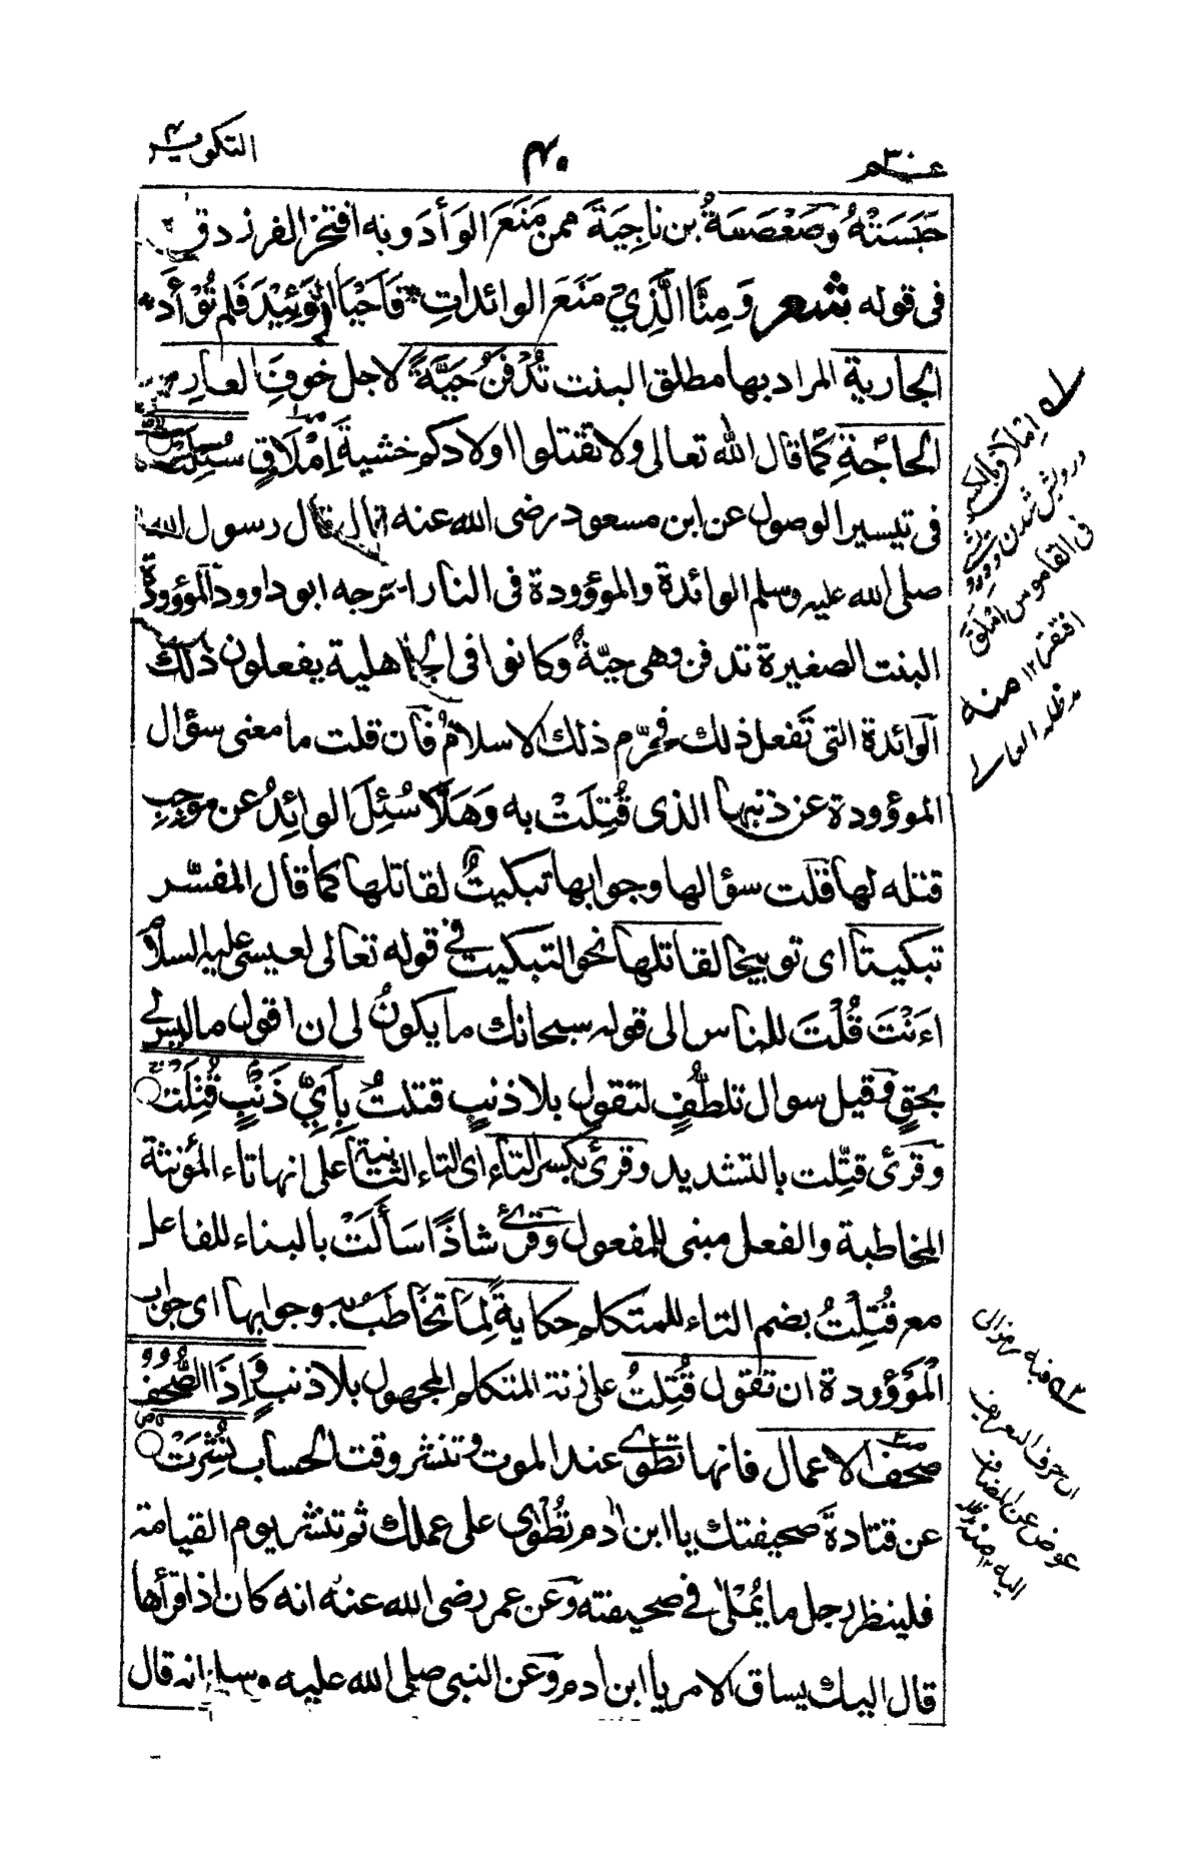 عم ٣٠
٤٠
التكوير
حَبَسَتْهُ وصَعْصَعَةُ بن ناجِيَةَ ممن مَنَعَ الوَأدَ وبه افتخر الفرزدق
فى قوله شعر وَمِنَّا الَّذِيْ مَنَعَ الوائداتِ * فَاَحْيَا الْوَئِيْدَ فَلم تُوْأَد *
الجارية المراد بها مطلق البنت تُدْفَنُ حَيَّةً لاجل خوفِ العارِ
الحاجَةِ كما قال الله تعالى ولا تقتلوا اولادكم خشيةَ اِمْلَاقٍ سُئِلَتْ
فى تيسير الوصول عن ابن مسعود رضى الله عنه قال قال رسول الله
صلى الله عليه وسلم الوائدة والموؤودة فى النار اخرجه ابو داوود الموؤودة
البنت الصغيرة تدفن وهى حيّة وكانوا فى الجاهلية يفعلون ذلك
الوائدة التى تَفعل ذلك فحرّم ذلك الاسلامُ فان قلت ما معنى سؤال
الموؤودة عن ذنبها الذى قُتِلَتْ به وَهَلَّا سُئِلَ الوائِدُ عن موجِبِ
قتله لها قلت سؤالها وجوابها تبكيتٌ لقاتلها كما قال المفسّر
تبكيتا اى توبيخا لقاتلها نحو التبكيت فى قوله تعالى لعيسى عليه السلام
اءَنْتَ قُلْتَ للناس الى قوله سبحانك ما يكونُ لى ان اقول ما ليس لى
بحقٍ وقيل سوال تلطُّفٍ لتقول بلا ذنبٍ قتلتُ بِاَيِّ ذَنْبٍ قُتِلَتْ
وقرئ قتِّلت بالتشديد وقرئ بكسر التاء اى التاء الثانية على انها تاء المؤنثة
المخاطبة والفعل مبنى للمفعول وقرئ شاذًا سَأَلَتْ بالبناء للفاعل
مع قُتِلْتُ بضم التاء للمتكلم حكايةً لِمَا تخاطَبُ به وجوابها اى جواب
الْمَوْؤودة ان تقول قُتِلتُ على زنة المتكلم المجهول بلا ذنبٍ وَاِذَا الصُّحُفُ
صحف الاعمال فانها تطوى عند الموت وتنشر وقت الحساب نُشِرَتْ
عن قتادة صحيفتك يا ابن ادم تُطْوٰى على عملك ثم تنشر يوم القيامة
فلينظر رجل ما يُمْلٰى فى صحيفته وعن عمر رضى الله عنه انه كان اذا قرأها
قال اليك يساق الامر يا ابن ادم وعن النبى صلى الله عليه وسلم انه قال
له اِملاق بالكسر
درويش شدن
فى القاموس املَقَ
افتقر ١٢ منه
مد ظله العالى
ال حرف التعريف
عوض عن المضاف
اليه ١٢ منه